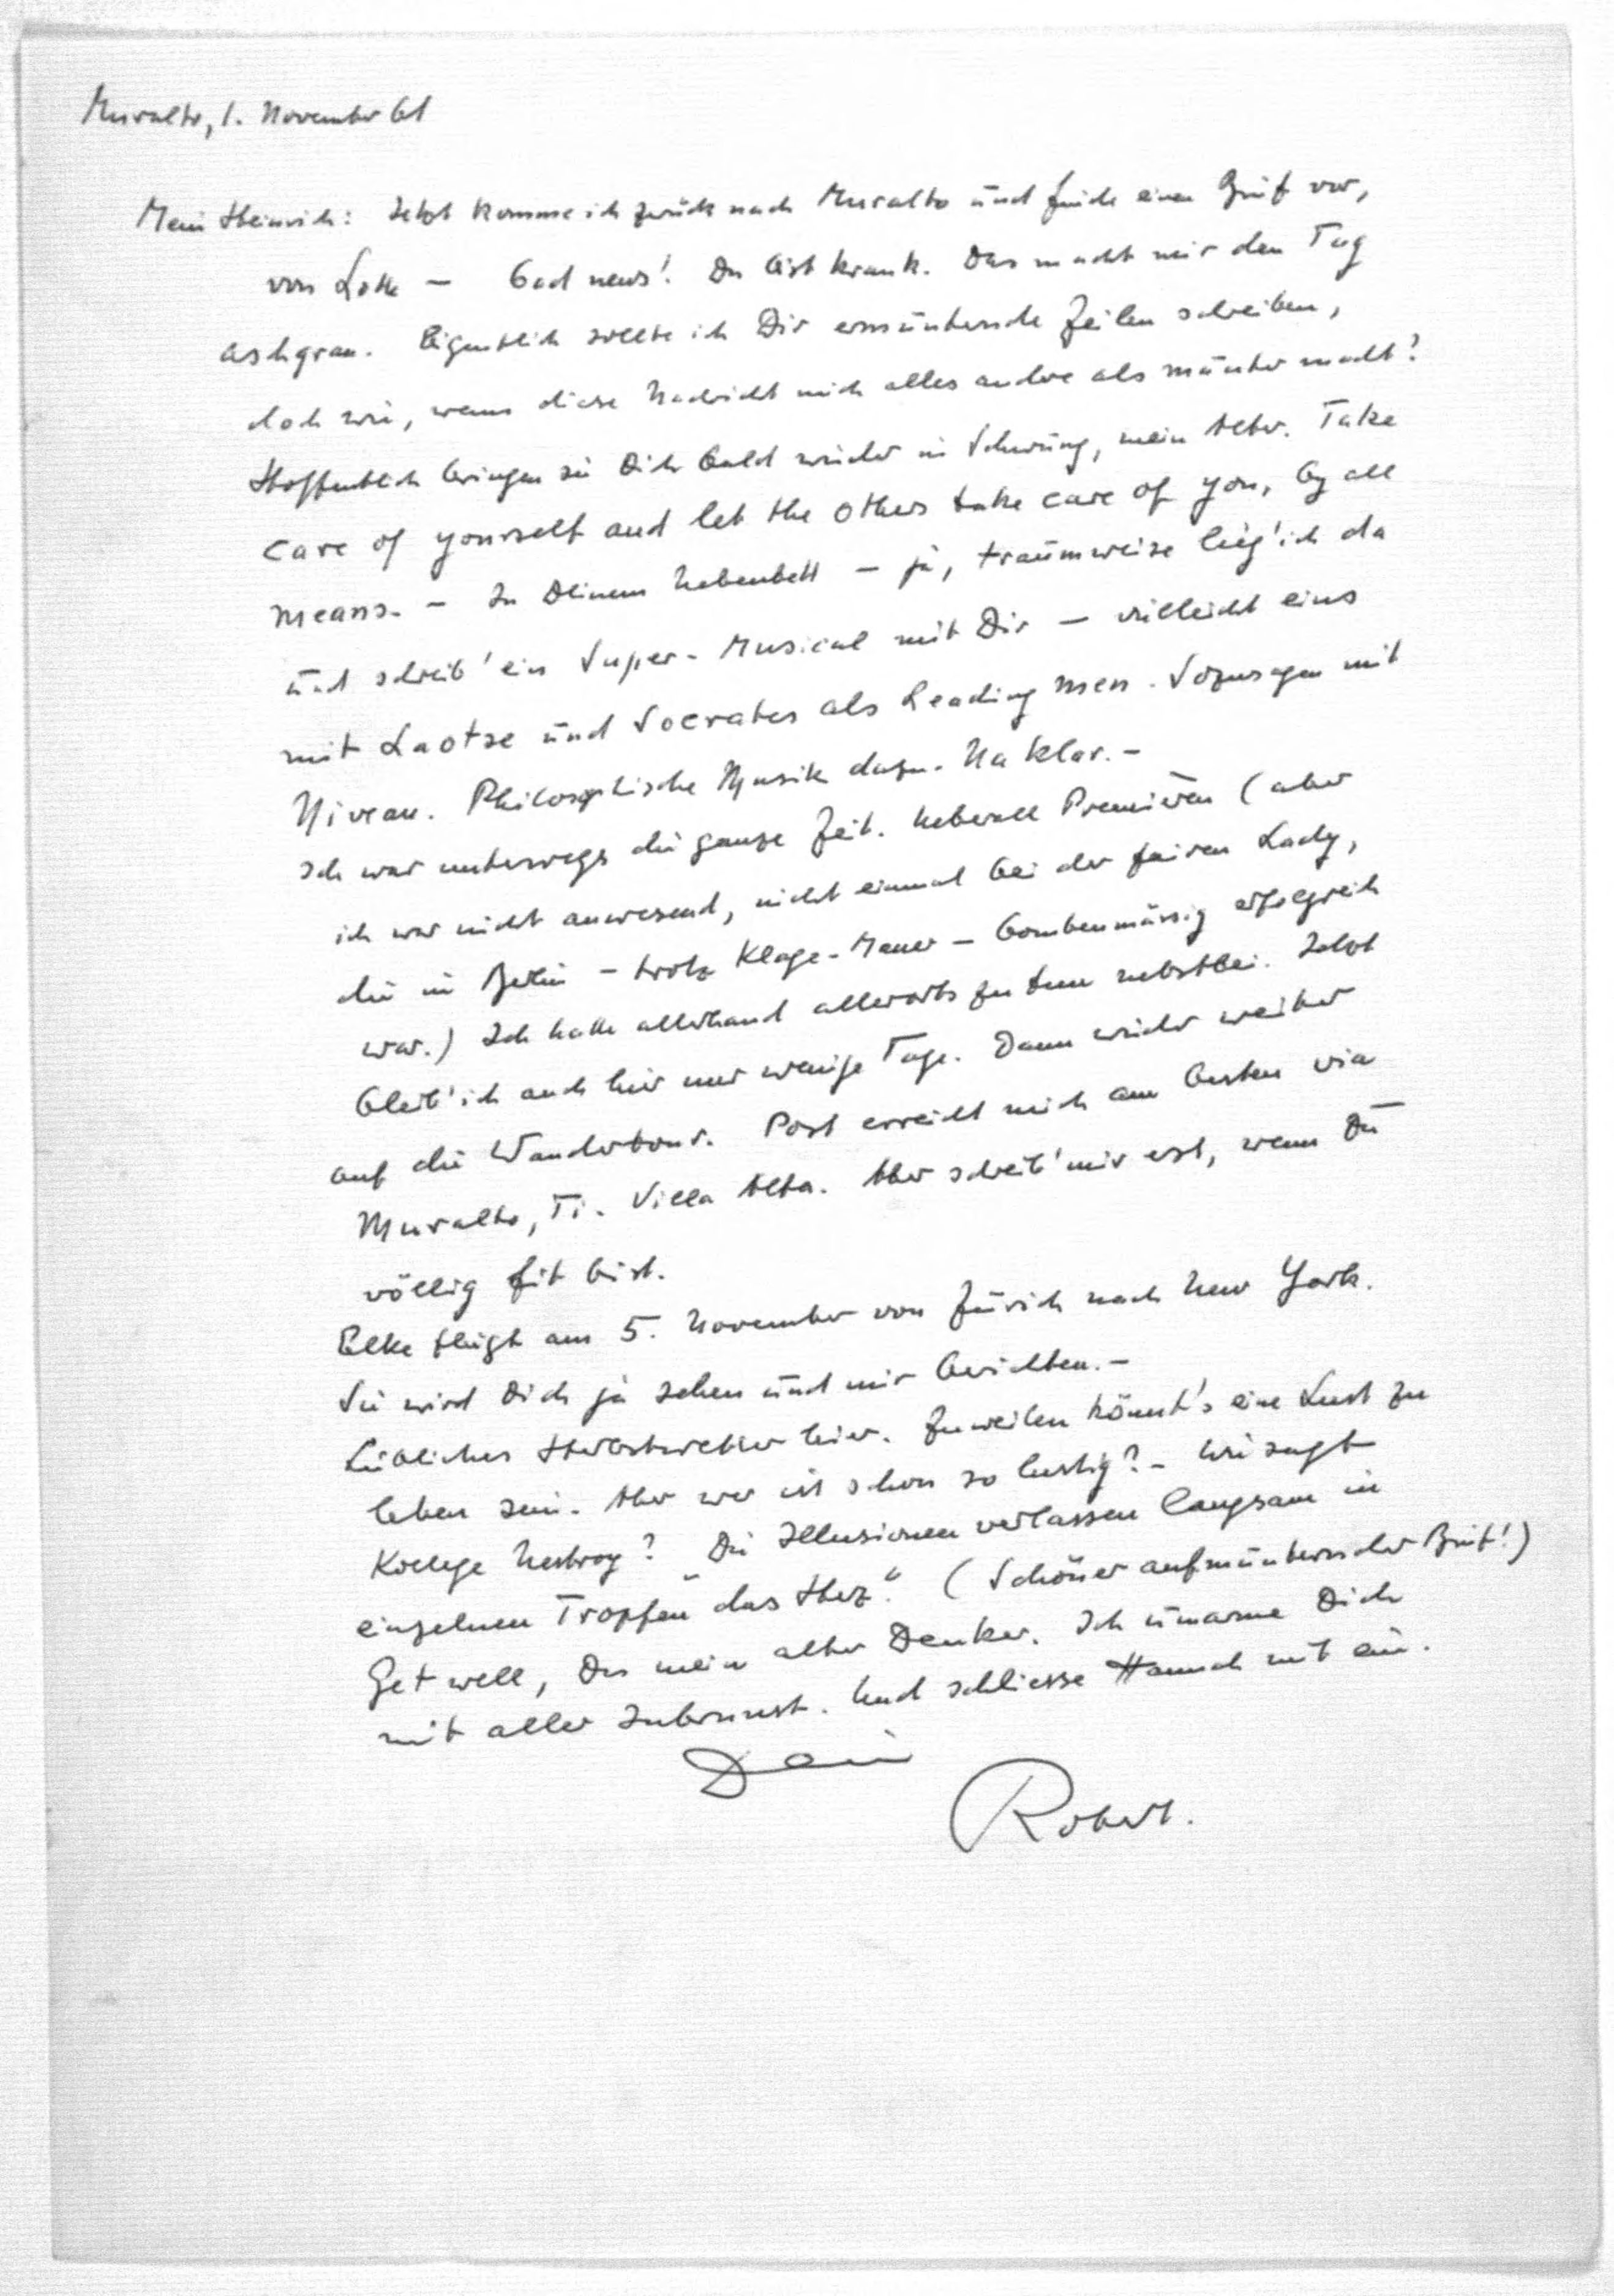 Muralto, 1. November 61
Mein Heinrich: Jetzt komme ich zurück nach Muralto und finde einen Brief vor,
von Lotte — bad news! Du bist krank. Das macht mir den Tag
aschgrau. Eigentlich sollte ich Dir ermunternde Zeilen schreiben,
doch wie, wenn diese Nachricht mich alles andre als munter macht?
Hoffentlich bringen sie Dich bald wieder in Schwung, mein Alter. Take
care of yourself and let the others take care of you, by all
means. — In Deinem Nebenbett — ja, traumweise lieg' ich da
und schreib' ein Super-Musical mit Dir — vielleicht eins
mit Laotse und Socrates als Leading men. Sozusagen mit
Niveau. Philosophische Musik dazu. Na klar. —
Ich war unterwegs die ganze Zeit. Ueberall Premièren (aber
ich war nicht anwesend, nicht einmal bei der fairen Lady,
die in Berlin — trotz Klage-Mauer — bombenmässig erfolgreich
war.) Ich hatte allerhand allerorts zu tun nebstbei. Jetzt
bleib' ich auch hier nur wenige Tage. Dann wieder weiter
auf die Wandertour. Post erreicht mich am besten via
Muralto, Ti. Villa Alta. Aber schreib' mir erst, wenn Du
völlig fit bist.
Elke fliegt am 5. November von Zürich nach New York.
Sie wird Dich ja sehen und mir berichten. —
Liebliches Herbstwetter hier. Zuweilen könnt's eine Lust zu
leben sein. Aber wer ist schon so lustig? — Wie sagt
Kollege Nestroy? Die Illusionen verlassen langsam in
einzelnen Tropfen das Herz." (Schöner aufmunternder Brief!)
Get well, Du mein alter Denker. Ich umarme Dich
mit aller Inbrunst. Und schliesse Hannah mit ein.
Dein
Robert.